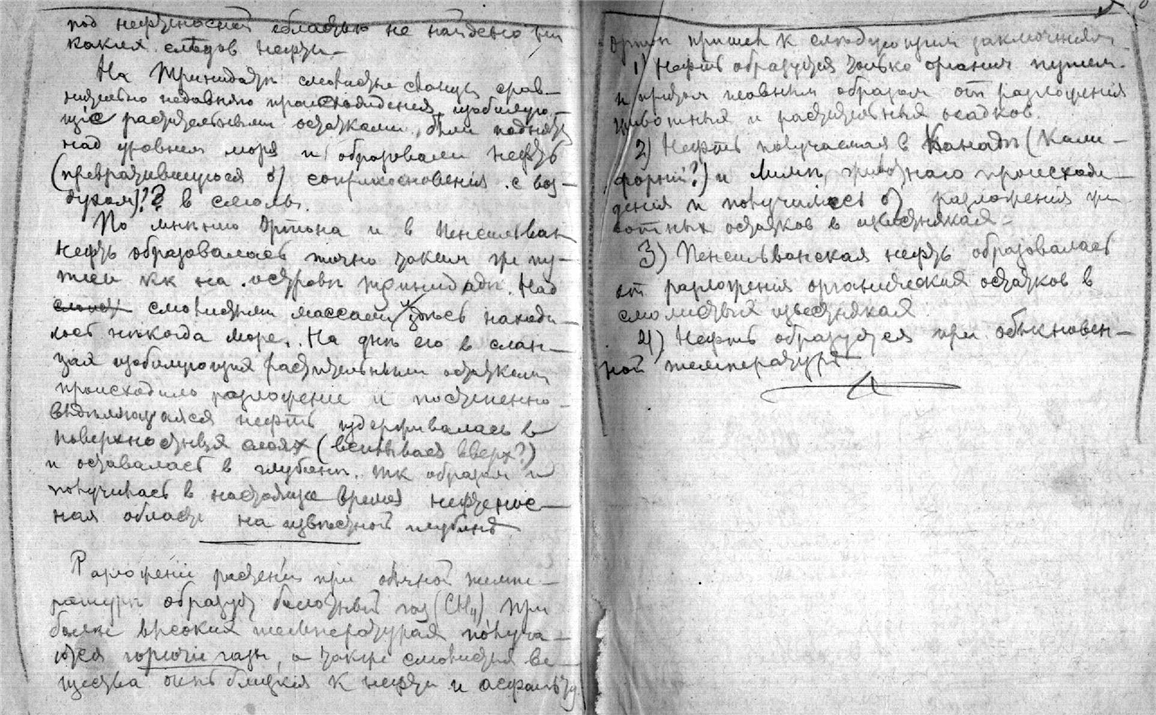 под нефтеносной областью не найдено ни
каких следов нефти.
На Тринидаде смолистые сланцы срав-
нительно недавняго происхождения, изобилую-
щие растительными остатками, были подняты
над уровнем моря и образовали нефть
(превратившуюся от соприкосновения с воз-
духом)?? в смолы.
По мнению Ортона и в Пенсильван
нефть образовалась точно таким же пу-
тем кк на островѣ Тринидадѣ. Над
смолистыми массами здѣсь находи-
лось никогда море. На днѣ его в слан-
цах изобилующих растительными остатками
происходило разложение и постепенно
нефть удерживалась в
поверхностных слоях (всплывает вверх?)
и оставалась в глубинѣ. Тк образом и
получилась в настоящее время нефтенос-
ная область на извѣстной глубинѣ
Разложение растений при обычной темпе-
ратурѣ образует болотный газ (CH4) при
более высоких температурах получа-
ются горючие газы, а также смолистые ве-
щества очень близкия к нефти и асфальту.
Ортон пришел к следующим заключениям
1) Нефть образуется только органич путем
и притом главным образом от разложения
животных и растительных осадков.
2) Нефть получаемая в Канадѣ (Кали-
форнии?) и Лимѣ, животнаго происхож-
дения и получилась от разложения жи-
вотных остатков в известняках.
3) Пенсильванская нефть образовалась
от разложения органических остатков в
смолистых известняках
4) Нефть образуется при обыкновен-
ной температурѣ.